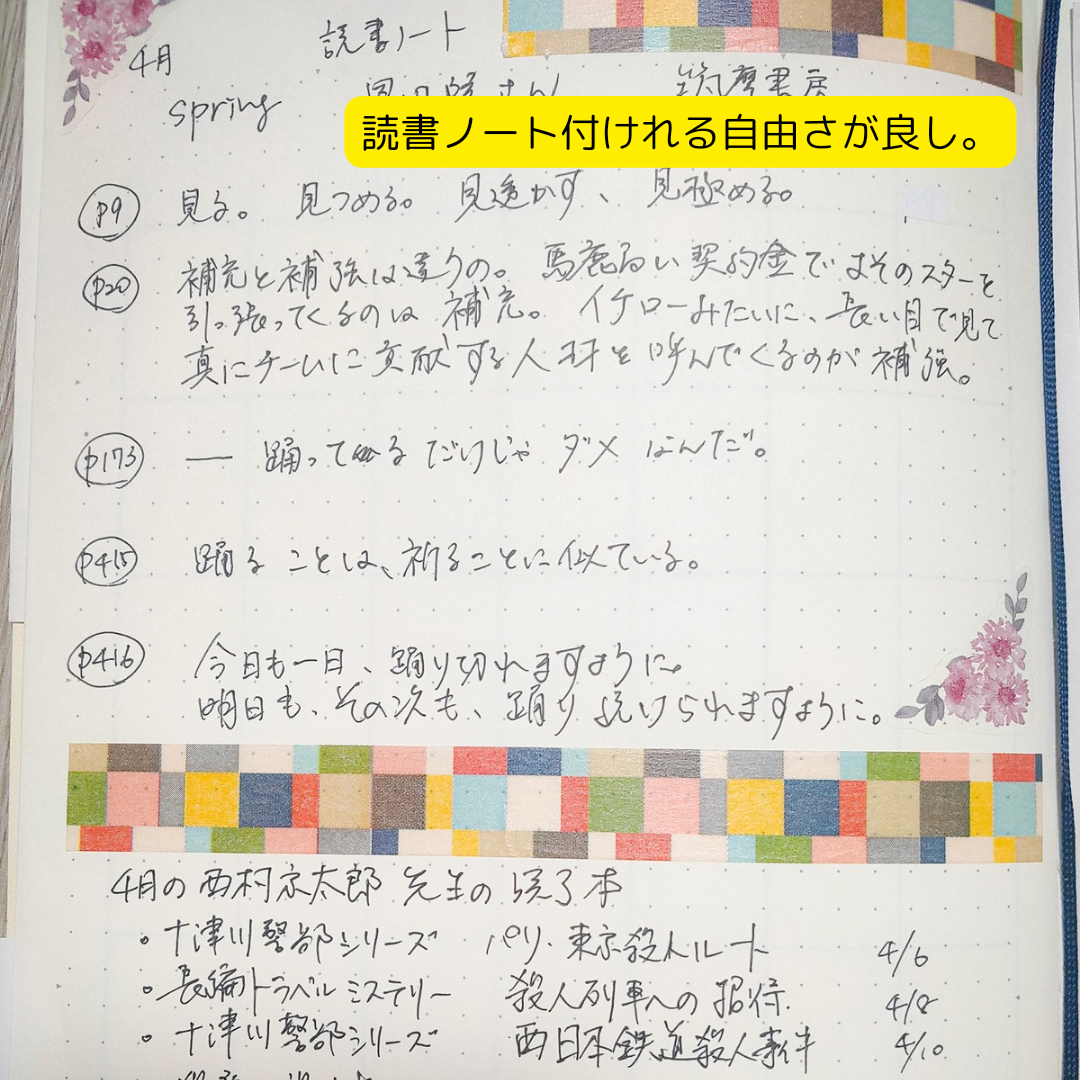 4月 読書ノート
spring 筑摩書房
読書ノート付けれる自由さが良し。
p9 見る。 見つめる。 見透かす、 見極める。
p20 補充と補強は違うの。 馬鹿高い契約金でよそのスターを
引っ張ってくるのは 補充。 イチローみたいに、長い目で見て
真にチームに貢献する人材を呼んでくるのが補強。
p173 — 踊ってるだけじゃ ダメ なんだ。
p415 踊る ことは、祈ることに似ている。
p416 今日も一日、踊り切れますように。
明日も、その次も、踊り 続けられますように。
4月の西村京太郎 先生の 読了本
・十津川警部シリーズ パリ・東京殺人ルート 4/6
・長編トラベルミステリー 殺人列車への招待 4/8
・十津川警部シリーズ 西日本鉄道殺人事件 4/10